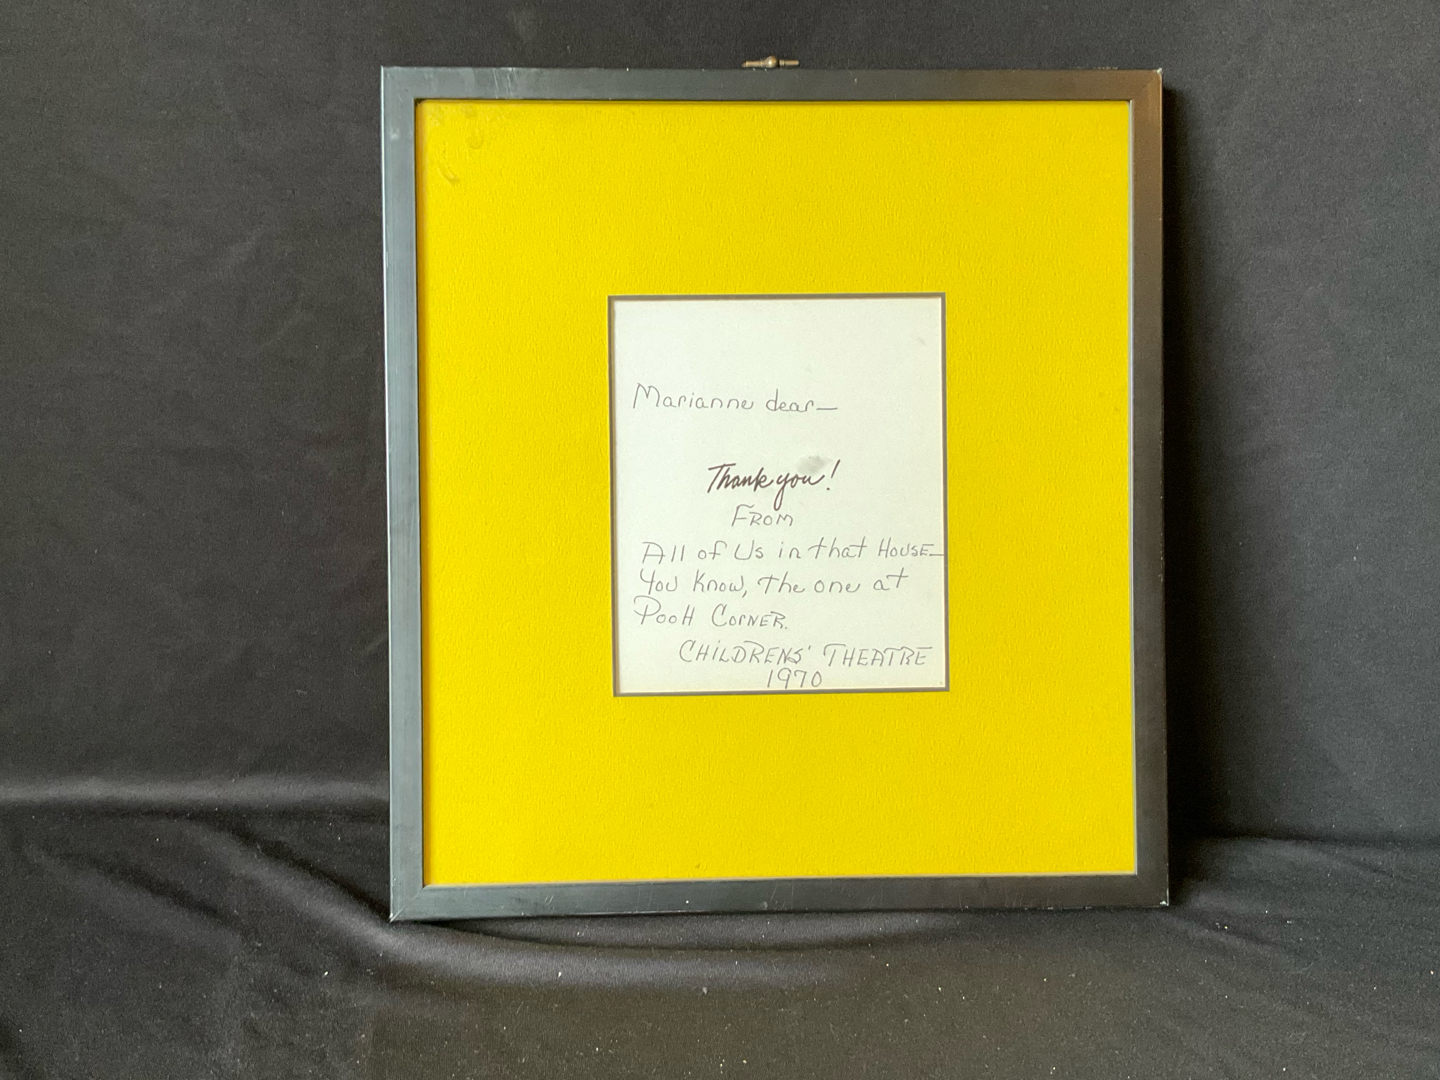 Marianne dear—
Thank you!
FROM
All of Us in that HOUSE—
You Know, the one at
PooH CorNER.
CHiLDRENS' THEATRE
1970